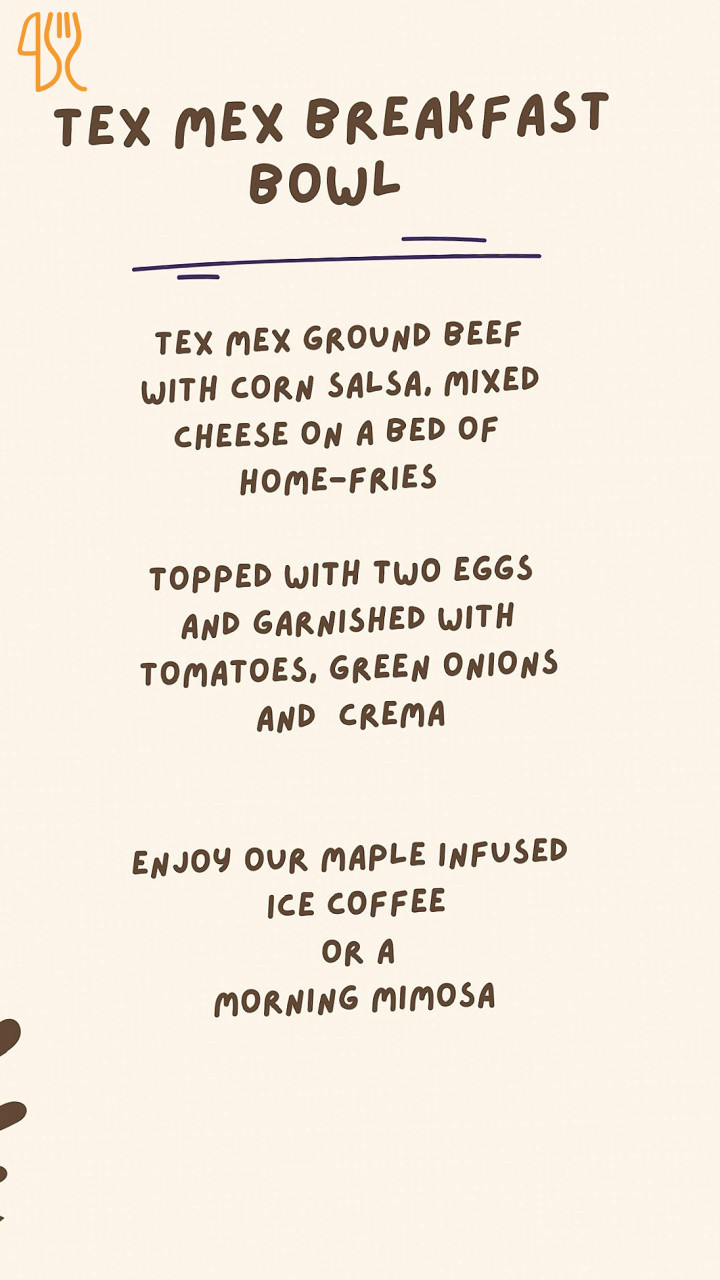 TEX MEX BREAKFAST
BOWL
TEX MEX GROUND BEEF
WITH CORN SALSA, MIXED
CHEESE ON A BED OF
HOME-FRIES
TOPPED WITH TWO EGGS
AND GARNISHED WITH
TOMATOES, GREEN ONIONS
AND CREMA
ENJOY OUR MAPLE INFUSED
ICE COFFEE
OR A
MORNING MIMOSA